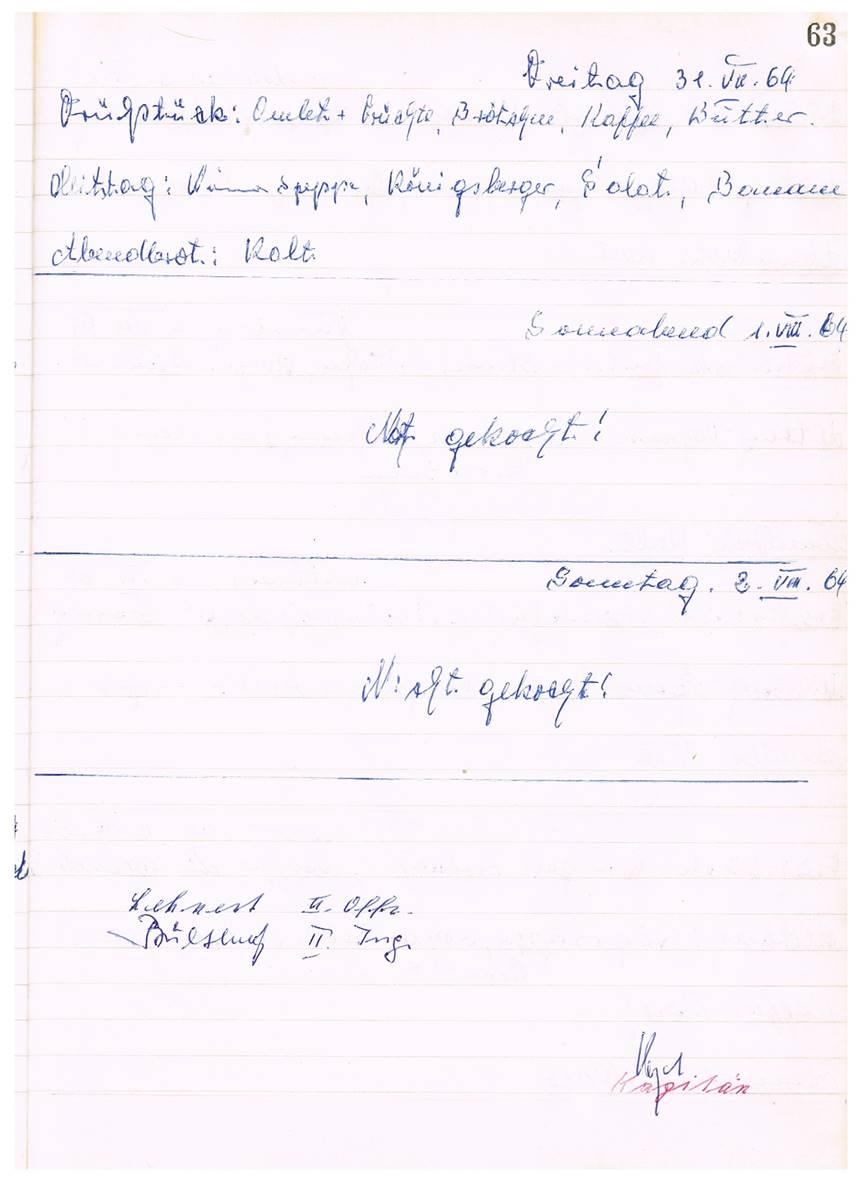 63
Freitag 31. VII. 64.
Frühstück: Omlet + Früchte, Brötchen, Kaffee, Butter.
Mittag: Königsberger, Salat, Banane
Abendbrot: Kalt.
Sonnabend 1. VIII. 64
gekocht!
Sonntag. 2. VIII. 64
Nicht. gekocht!
Lehnert II. Offz.
II. Ing.
Kapitän